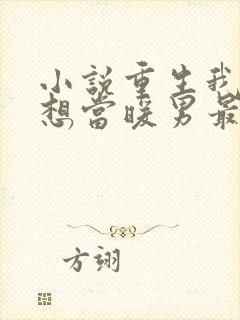 小説重生我
想當暖男最
方翊